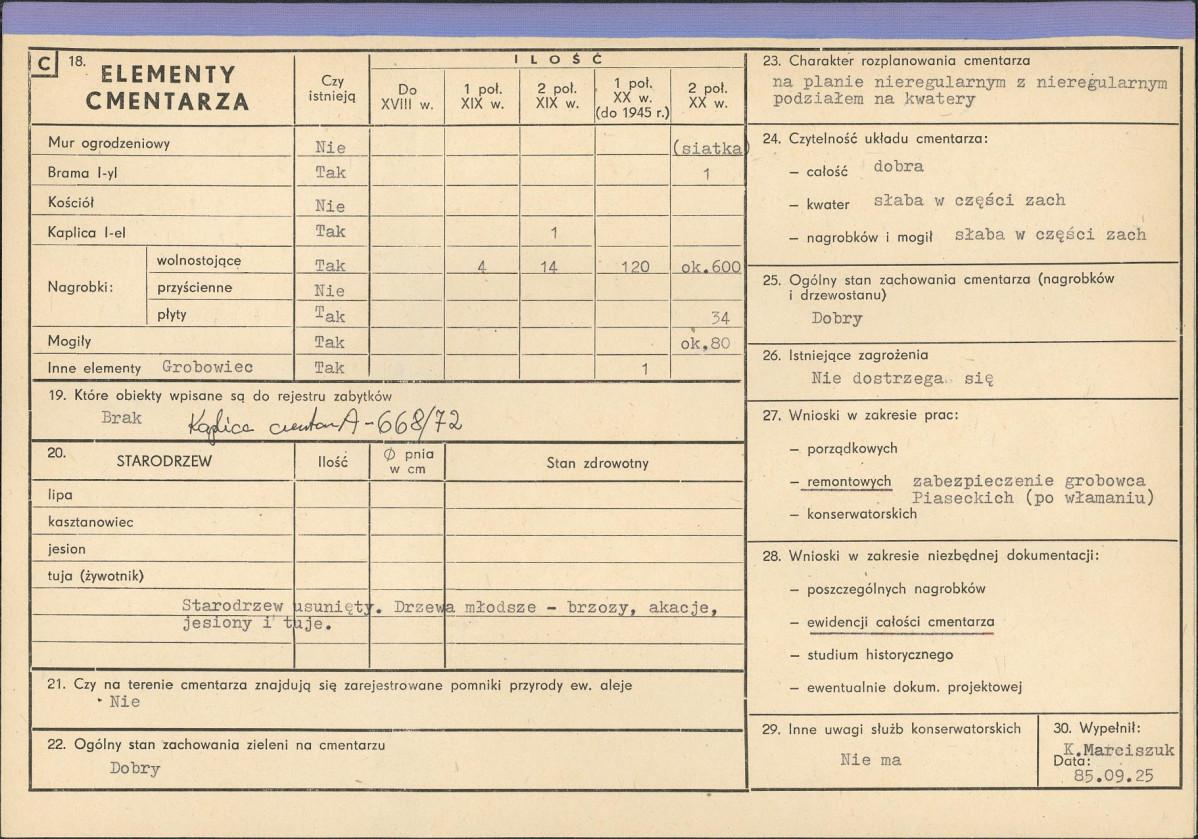 C 18. ELEMENTY CMENTARZA
Czy istnieją
ILOŚĆ
Do XVIII w.
1 poł. XIX w.
2 poł. XIX w.
1 poł. XX w. (do 1945 r.)
2 poł. XX w.
Mur ogrodzeniowy Nie (siatka)
Brama I-yl Tak 1
Kościół Nie
Kaplica I-el Tak 1
Nagrobki:
wolnostojące Tak 4 14 120 ok.600
przyścienne Nie
płyty Tak 34
Mogiły Tak ok.80
Inne elementy Grobowiec Tak 1
19. Które obiekty wpisane są do rejestru zabytków
Brak Kaplica cmentar A-668/72
20. STARODRZEW Ilość Ø pnia w cm Stan zdrowotny
lipa
kasztanowiec
jesion
tuja (żywotnik)
Starodrzew usunięty. Drzewa młodsze - brzozy, akacje,
jesiony i tuje.
21. Czy na terenie cmentarza znajdują się zarejestrowane pomniki przyrody ew. aleje
Nie
22. Ogólny stan zachowania zieleni na cmentarzu
Dobry
23. Charakter rozplanowania cmentarza
na planie nieregularnym z nieregularnym
podziałem na kwatery
24. Czytelność układu cmentarza:
– całość dobra
– kwater słaba w części zach
– nagrobków i mogił słaba w części zach
25. Ogólny stan zachowania cmentarza (nagrobków
i drzewostanu)
Dobry
26. Istniejące zagrożenia
Nie dostrzega się
27. Wnioski w zakresie prac:
– porządkowych
– remontowych zabezpieczenie grobowca
Piaseckich (po włamaniu)
– konserwatorskich
28. Wnioski w zakresie niezbędnej dokumentacji:
– poszczególnych nagrobków
– ewidencji całości cmentarza
– studium historycznego
– ewentualnie dokum. projektowej
29. Inne uwagi służb konserwatorskich
Nie ma
30. Wypełnił:
K.Marciszuk
Data:
85.09.25